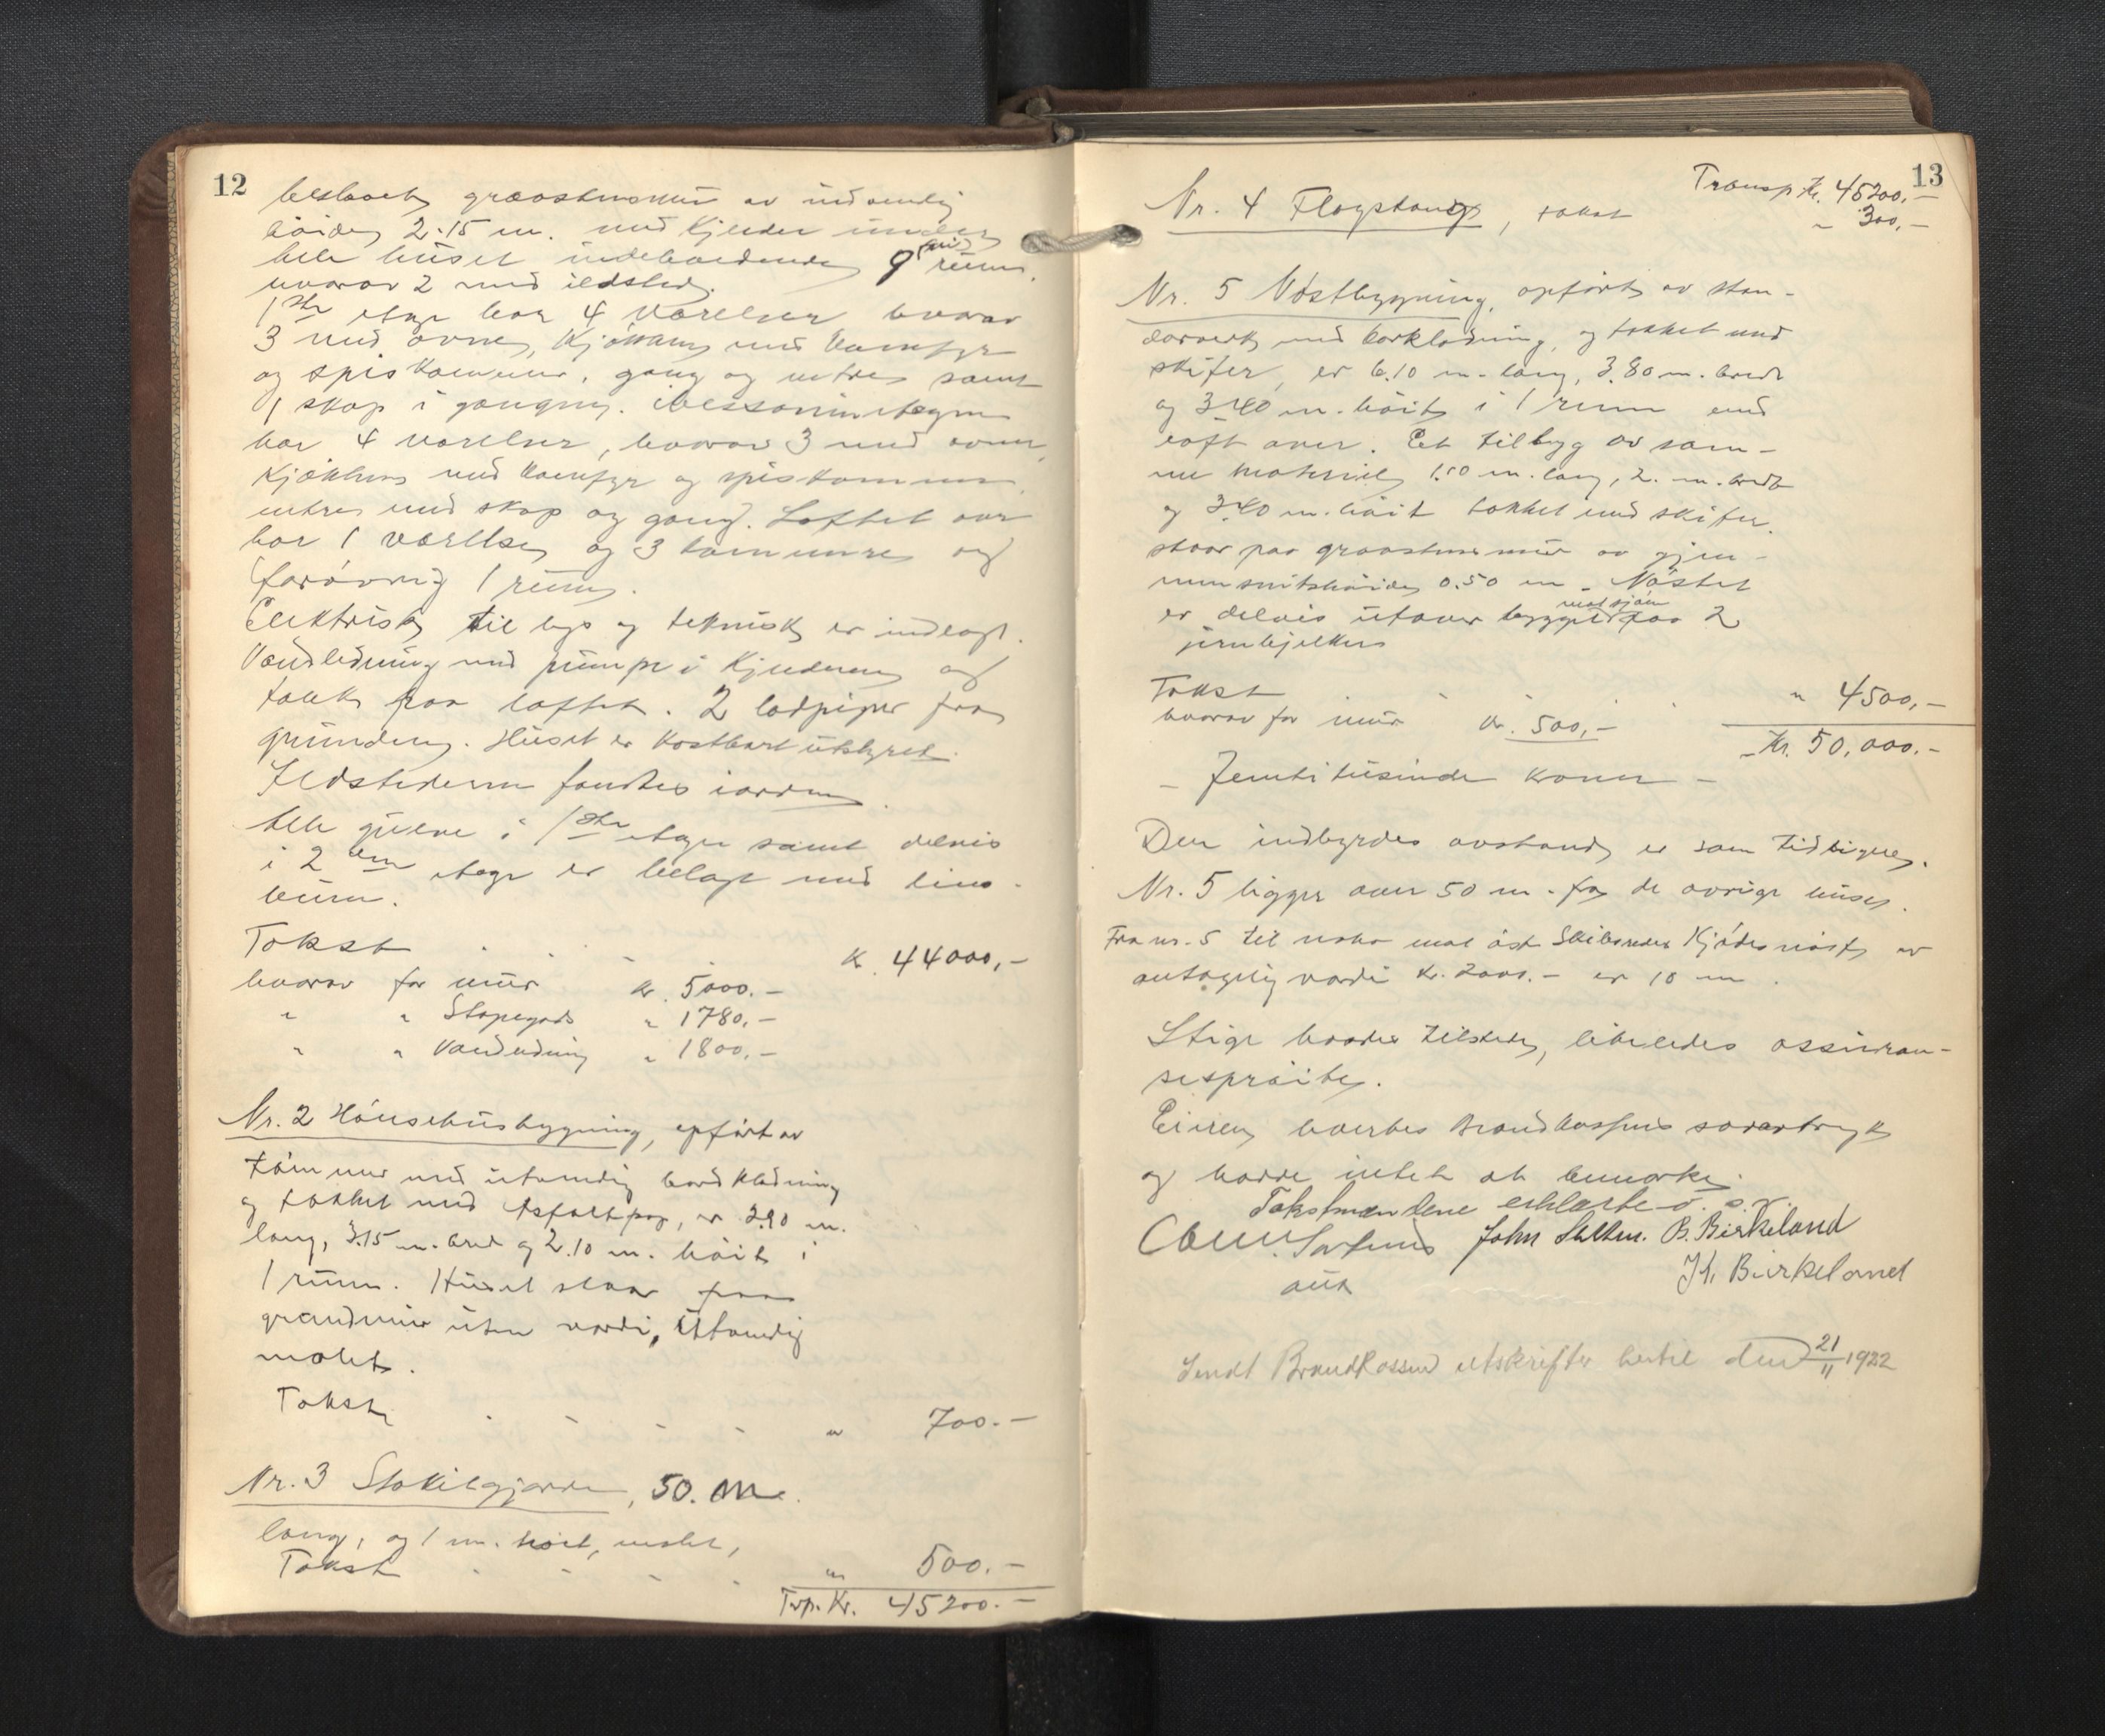 12
graastensmur av indvendig
høide 2.15 m. med Kjelder under
hele huset indeholdende 9 rum
hvorav 2 med ildsted.
1ste etage har 4 værelser hvorav
3 med ovne, Kjøkken med Komfyr
og spiskammer, gang og entre samt
1 skap i gangen. etagen
har 4 værelser, hvorav 3 med ovner,
Kjøkken med Komfyr og spiskammer,
entre med skap og gang. Loftet over
har 1 værelse og 3 kammere og
forøvrig 1 rum.
Elektrisk til lys og teknisk er indlagt.
Vandledning med pumpe i Kjelderen og
tank paa loftet. 2 lødpiper fra
grunden. Huset er kostbart utstyret.
Ildstederne fandtes iorden.
Alle gulve i 1ste etage samt delvis
i 2den etage er belagt med lino-
leum.
Takst Kr. 44000,-
hvorav for mur kr. 5000.-
" " Støpegods " 1780,-
" " Vandledning " 1800,-
Nr. 2 Hønsehusbygning, opført av
tømmer med utvendig bordklædning
og tækket med Asfaltpap, er 3.90 m.
lang, 3.15 m. bred og 2.10 m. høit i
1 rum. Huset staar paa
grundmur uten værdi, Utvendig
malet.
Takst " 700.-
Nr. 3 Stakitgjærde, 50. m.
lang, og 1 m. høit, malet,
Takst " 500.-
Trp. Kr. 45200.-
13
Transp. Kr. 45200.-
Nr. 4 Flagstang, takst " 300,-
Nr. 5 Nøstbygning, opført av sten-
derverk med bordklædning, og tækket med
skifer, er 6.10 m. lang, 3.80 m. bredt
og 3.40 m. høit i 1 rum med
loft over. Et tilbyg av sam-
me materiel 1.50 m. lang, 2. m. bredt
og 3.40 m. høit tækket med skifer.
staar paa graastensmur av gjen-
nemsnitshøide 0.50 m. Nøstet
mot sjøen
er delvis utover bygget paa 2
jernbjelker
Takst " 4500,-
hvorav for mur Kr. 500,-
Kr. 50,000.-
- Femtitusinde kroner -
Den indbyrdes avstand er som tidligere.
Nr. 5 ligger over 50 m. fra de øvrige huse.
Fra nr. 5 til nabo mot øst nøst av
antagelig værdi kr. 2000.- er 10 m.
Stige havdes tilstede, likeledes assuran-
sesprøite.
Eieren Brandkassens særtryk
og hadde intet at bemerke.
Takstmændene erklærte o. s. v.
John B. Birkeland
K. Birkeland
Sendt Brandkassen utskrifter hertil den 21/11 1922